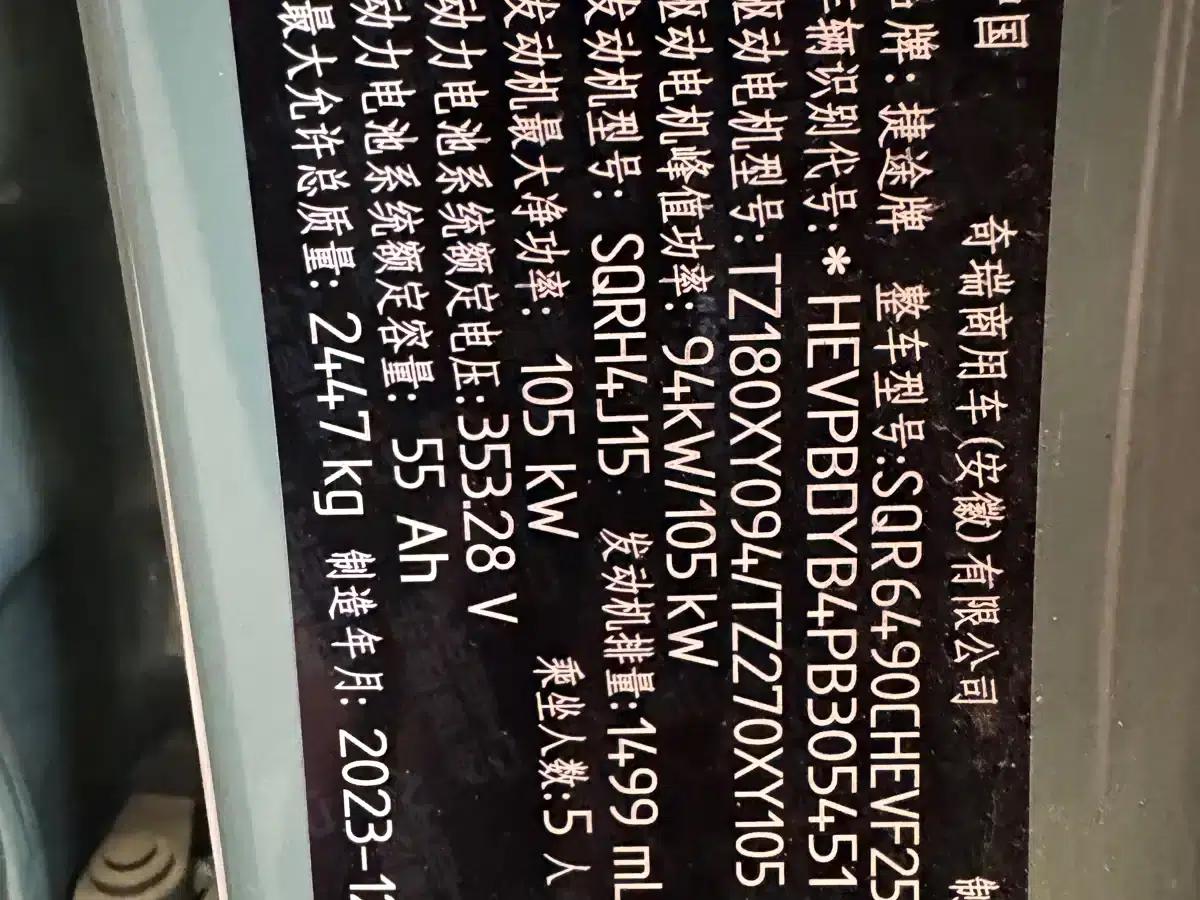 中国 奇瑞商用车(安徽)有限公司 制
品牌: 捷途牌 整车型号:SQR6490CHEVF25
车辆识别代号:*HEVPBDYB4PB305451
驱动电机型号:TZ180XY094/TZ270XY105
驱动电机峰值功率: 94kW/105kW
发动机型号: SQRH4J15 发动机排量:1499 mL
发动机最大净功率: 105 kW 乘坐人数:5 人
动力电池系统额定电压:353.28 V
动力电池系统额定容量: 55 Ah
最大允许总质量: 2447 kg 制造年月: 2023-12